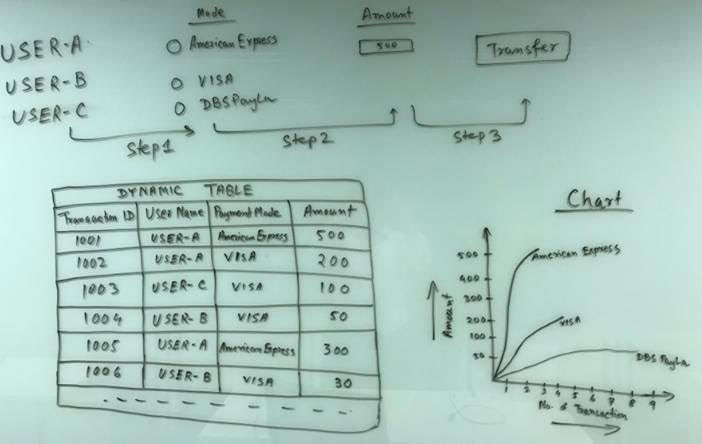 Mode Amount
USER-A American Express 500 Transfer
USER-B VISA
USER-C DBS PayLa
Step 1 Step 2 Step 3
DYNAMIC TABLE
Transaction ID User Name Payment Mode Amount
1001 USER-A American Express 500
1002 USER-A VISA 200
1003 USER-C VISA 100
1004 USER-B VISA 50
1005 USER-A American Express 300
1006 USER-B VISA 30
Chart
Amount
500
400
300
200
100
50
American Express
VISA
DBS PayLa
1 2 3 4 5 6 7 8 9
No. of Transaction